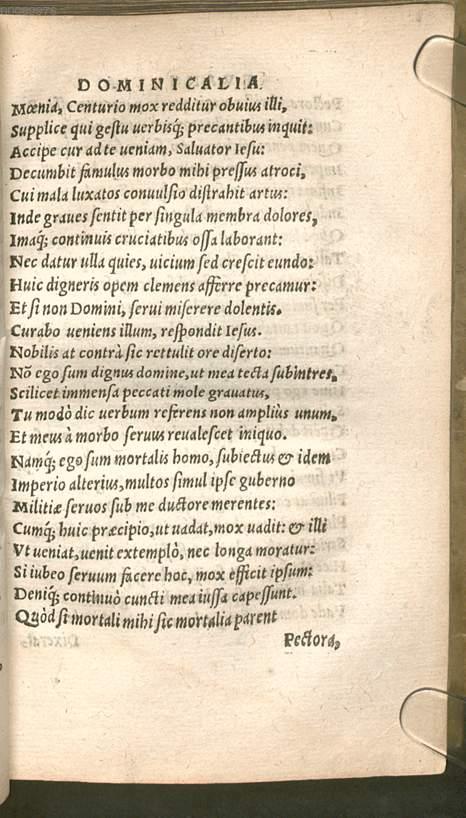 DOMINICALIA.
Mœnia, Centurio mox redditur obuius illi,
Supplice qui gestu uerbisq́; precantibus inquit:
Accipe cur ad te ueniam, Saluator Iesu:
Decumbit famulus morbo mihi pressus atroci,
Cui mala luxatos conuulsio distrahit artus:
Inde graues sentit per singula membra dolores,
Imaq́; continuis cruciatibus ossa laborant:
Nec datur ulla quies, uicium sed crescit eundo:
Huic digneris opem clemens afferre precamur:
Et si non Domini, serui miserere dolentis.
Curabo ueniens illum, respondit Iesus.
Nobilis at contrà sic rettulit ore diserto:
Nō ego sum dignus domine, ut mea tecta subintres,
Scilicet immensa peccati mole grauatus,
Tu modò dic uerbum referens non amplius unum,
Et meus à morbo seruus reualescet iniquo.
Namq́; ego sum mortalis homo, subiectus & idem
Imperio alterius, multos simul ipse guberno
Militiæ seruos sub me ductore merentes:
Cumq́; huic præcipio, ut uadat, mox uadit: & illi
Vt ueniat, uenit extemplò, nec longa moratur:
Si iubeo seruum facere hoc, mox efficit ipsum:
Deniq́; continuò cuncti mea iussa capessunt.
Quòd si mortali mihi sic mortalia parent
Pectora,